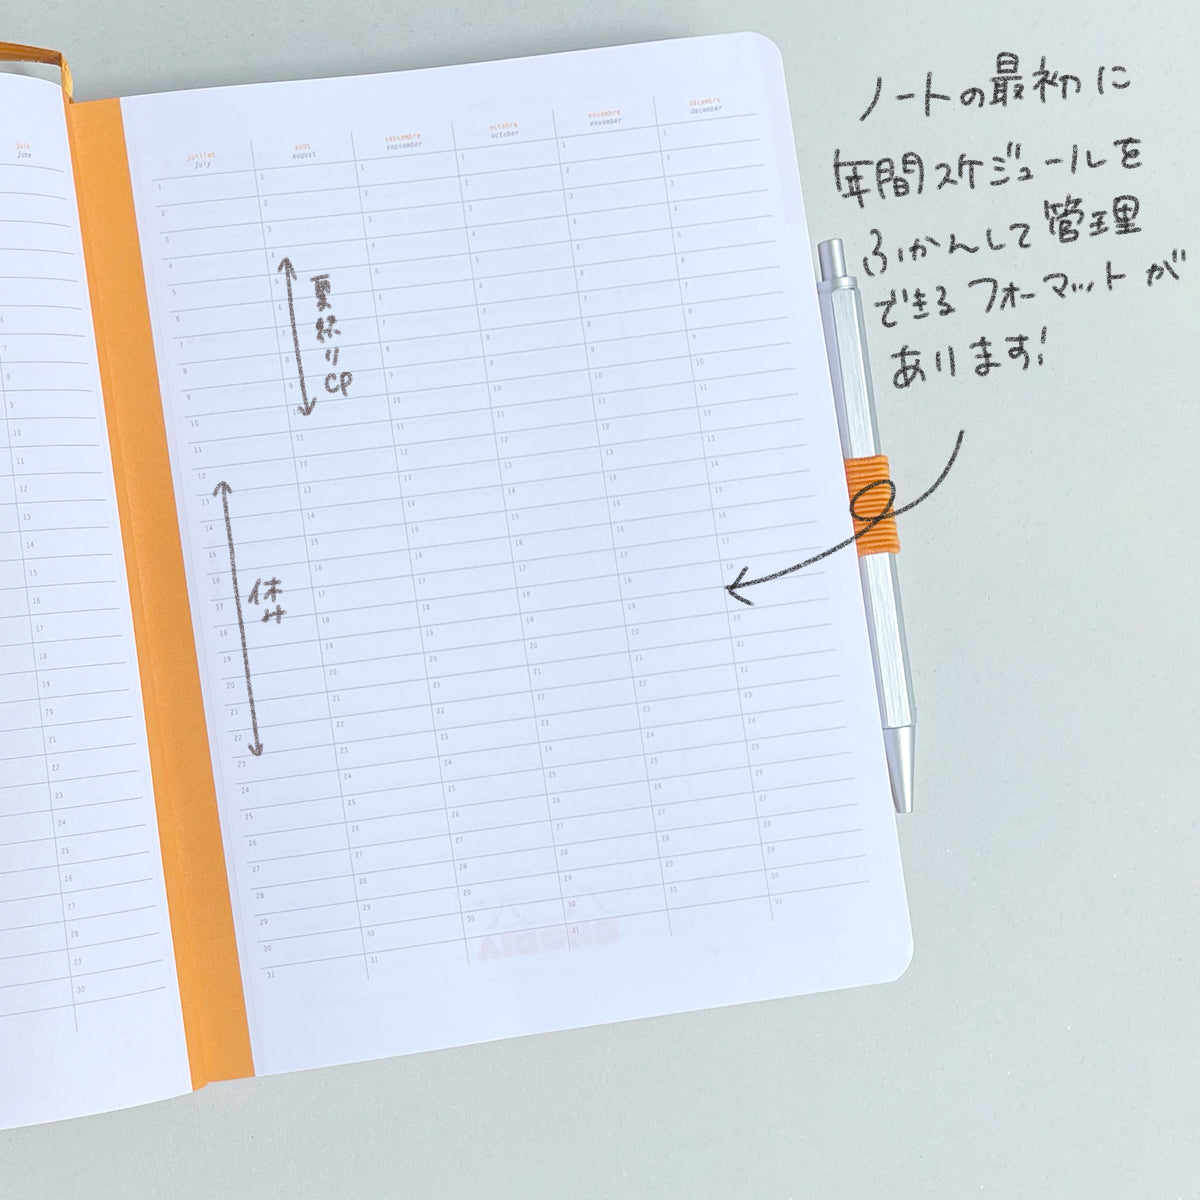 ノートの最初に
年間スケジュールを
ふかんして管理
できるフォーマットが
あります!
juin
June
juillet
july
août
august
septembre
september
octobre
october
novembre
november
décembre
december
夏祭り
CP
休み
RHODIA